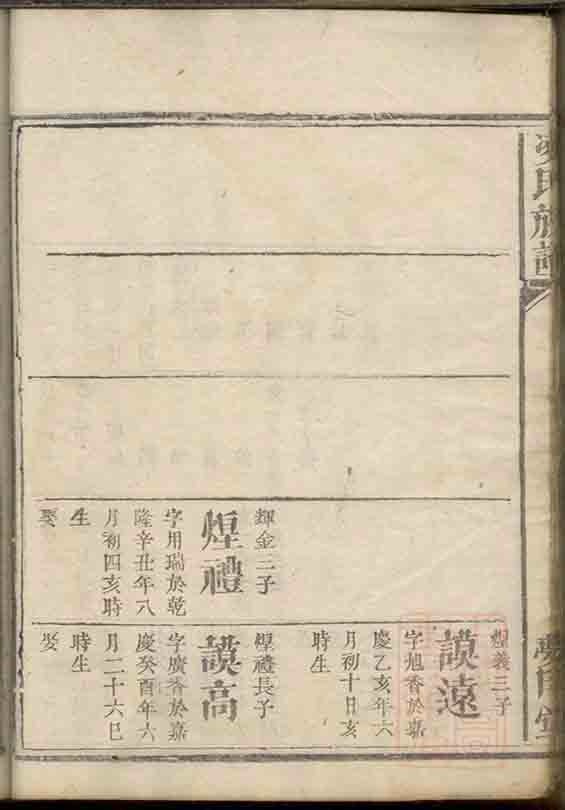 氏族譜
輝金三子
煌禮
字用瑞於乾
隆辛丑年八
月初四亥時
生
娶
煌義三子
謨遠
字旭香於嘉
慶乙亥年六
月初十日亥
時生
煌禮長子
謨高
字廣香於嘉
慶癸酉年六
月二十六巳
時生
娶